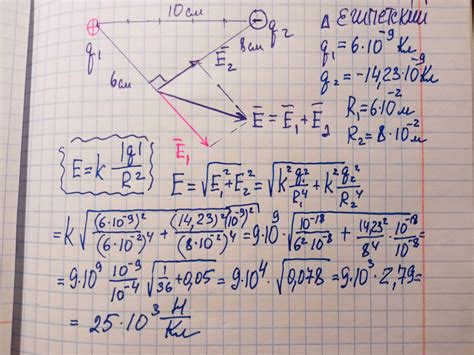 10 см
⊕ ⊖
q₁ q₂
6 см 8 см
E̅₂
E̅₁
E̅ = E̅₁ + E̅₂
Δ ЕГИПЕТСКИЙ
q₁ = 6·10⁻⁹ Кл
q₂ = -14,23·10⁻⁹ Кл
R₁ = 6·10⁻² м
R₂ = 8·10⁻² м
E = k·|q|/R²
E = √(E₁² + E₂²) = √(k² q₁²/R₁⁴ + k² q₂²/R₂⁴)
= k √((6·10⁻⁹)²/(6·10⁻²)⁴ + (14,23)²(10⁻⁹)²/(8·10⁻²)⁴) = 9·10⁹ √(10⁻¹⁸/6²·10⁻⁸ + 14,23²/8⁴ · 10⁻¹⁸/10⁻⁸) =
= 9·10⁹ 10⁻⁹/10⁻⁴ · √(1/36 + 0,05 = 9·10⁴·√0,078 = 9·10³·2,79 =
= 25·10³ Н/Кл